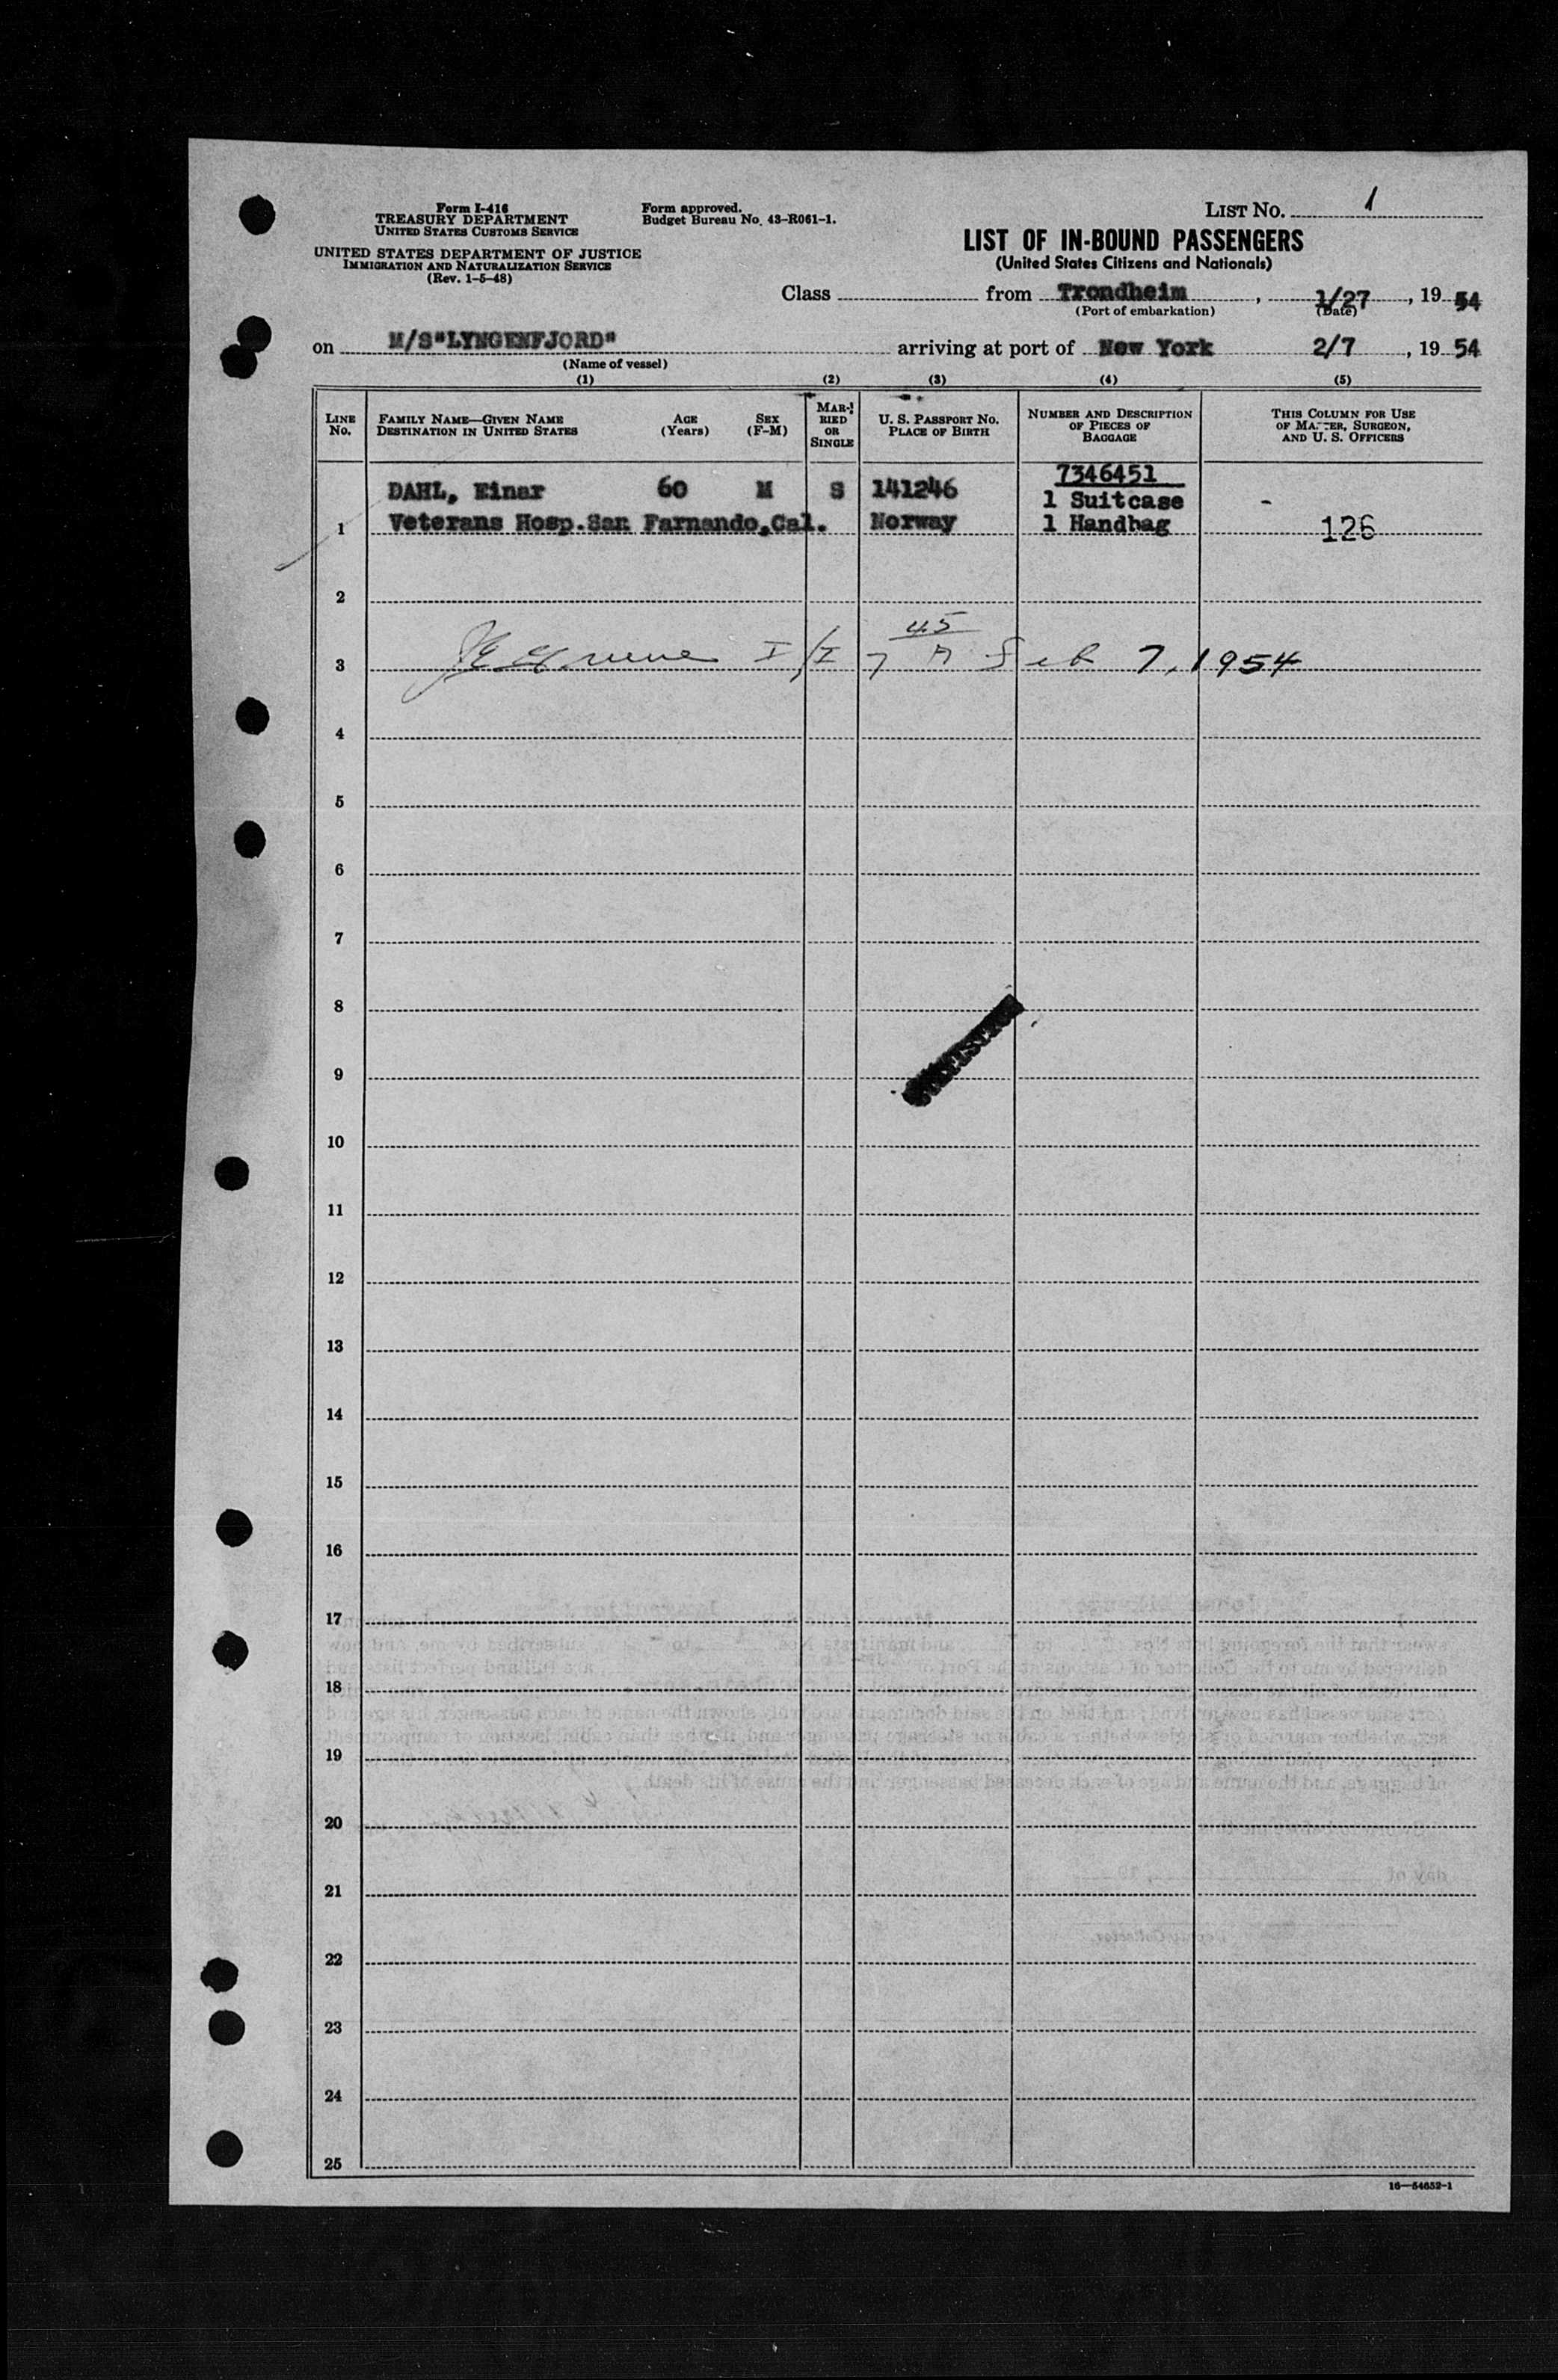 Form I-416
TREASURY DEPARTMENT
UNITED STATES CUSTOMS SERVICE
UNITED STATES DEPARTMENT OF JUSTICE
IMMIGRATION AND NATURALIZATION SERVICE
(Rev. 1-5-48)
Form approved.
Budget Bureau No. 43-R061-1.
LIST No. 1
LIST OF IN-BOUND PASSENGERS
(United States Citizens and Nationals)
Class from Trondheim, 1/27, 19 54
(Port of embarkation) (Date)
on M/S"LYNGENFJORD" arriving at port of New York 2/7, 19 54
(Name of vessel)
(1) (2) (3) (4) (5)
LINE No.
FAMILY NAME—GIVEN NAME
DESTINATION IN UNITED STATES
AGE (Years)
SEX (F-M)
MARRIED OR SINGLE
U. S. PASSPORT No.
PLACE OF BIRTH
NUMBER AND DESCRIPTION OF PIECES OF BAGGAGE
THIS COLUMN FOR USE OF MASTER, SURGEON, AND U. S. OFFICERS
7346451
DAHL, Einar 60 M S 141246 1 Suitcase -
1 Veterans Hosp.San Farnando,Cal. Norway 1 Handbag 126
2
3 I/I 7 45 A Feb 7, 1954
4
5
6
7
8
9
10
11
12
13
14
15
16
17
18
19
20
21
22
23
24
25
16—54652-1